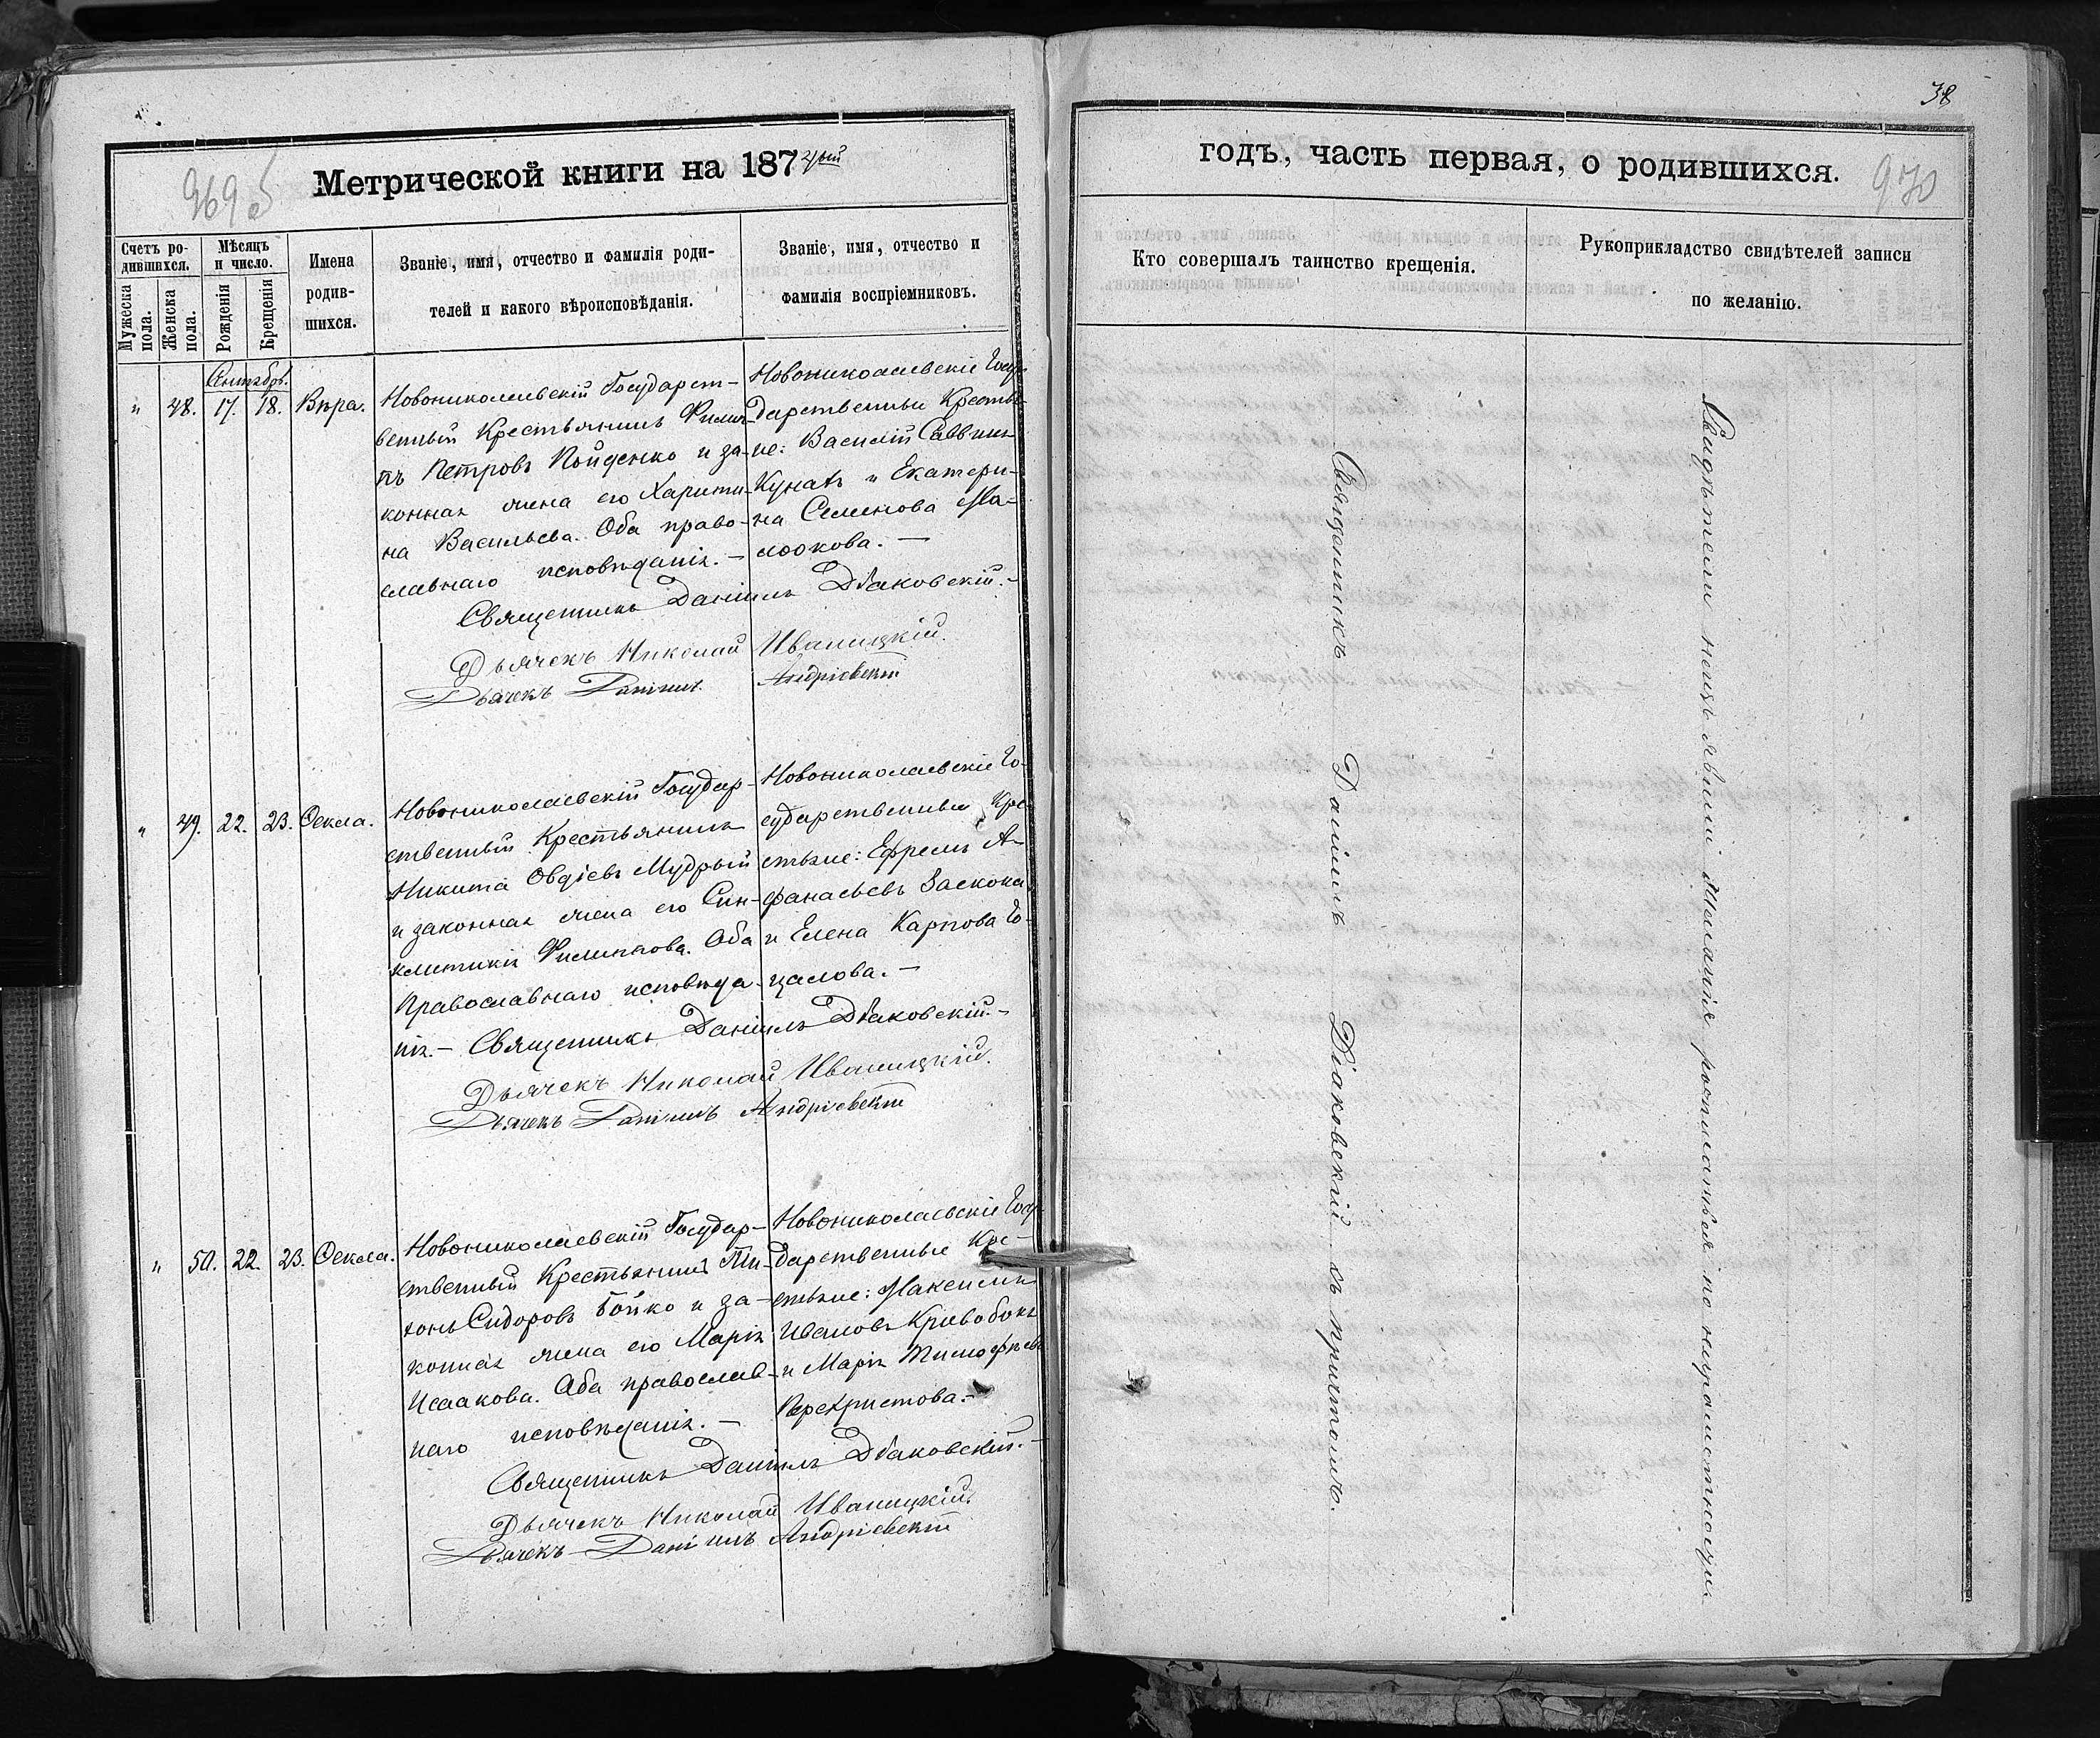 38
969б
970
Метрической книги на 187
годъ, часть первая, о родившихся.
Счетъ ро-
дившихся.
Мужеска
пола.
Женска
пола.
Мѣсяцъ
и число.
Рожденія
Крещенія
Имена
родив-
шихся.
Званіе, имя, отчество и фамилія роди-
телей и какого вѣроисповѣданія.
Званіе, имя, отчество и
фамилія воспріемниковъ.
Кто совершалъ таинство крещенія.
Рукоприкладство свидѣтелей записи
по желанію.
Сентябрь.
" 48. 17. 18. Вѣра.
Новониколаевскій Государст-
венный Крестьянинъ Филип-
пъ Петровъ Пойденко и за-
конная жена его Харити-
на Васильева. Оба право-
славнаго исповѣданія. –
Новониколаевскіе Госу-
дарственные Крестья-
не: Василій Саввинъ
Кунахъ и Екатери-
на Семенова
Священникъ Даніилъ Діаковскій. –
Дьячекъ Николай Иваницкій.
Дьячекъ Даніилъ Андріевскій
" 49. 22. 23. Ѳекла.
Новониколаевскій Государ-
ственный Крестьянинъ
Никита Овдіевъ Мудрый
и законная жена его Син-
клитикія Филиппова. Оба
Православнаго исповѣда-
нія. –
Новониколаевскіе Го-
сударственные Кре-
стьяне: Ефремъ А-
фанасьевъ Заскока
и Елена Карпова Го-
цалова. –
Священникъ Даніилъ Діаковскій. –
Дьячекъ Николай Иваницкій.
Дьячекъ Даніилъ Андріевскій
" 50. 22. 23. Ѳекла.
Новониколаевскій Государ-
ственный Крестьянинъ Ти-
хонъ Сидоровъ Бойко и за-
конная жена его Марія
Исаакова. Оба православ-
наго исповѣданія. –
Новониколаевскіе Госу-
дарственные Кре-
стьяне: Максимъ
Ивановъ Кривобокъ
и Марія Тимофѣева
Перехристова. –
Священникъ Даніилъ Діаковскій. –
Дьячекъ Николай Иваницкій.
Дьячекъ Даніилъ Андріевскій
Священникъ Даніилъ Діаковскій съ причтомъ.
Свидѣтели неизъявили желаніе росписаться по неграмотности